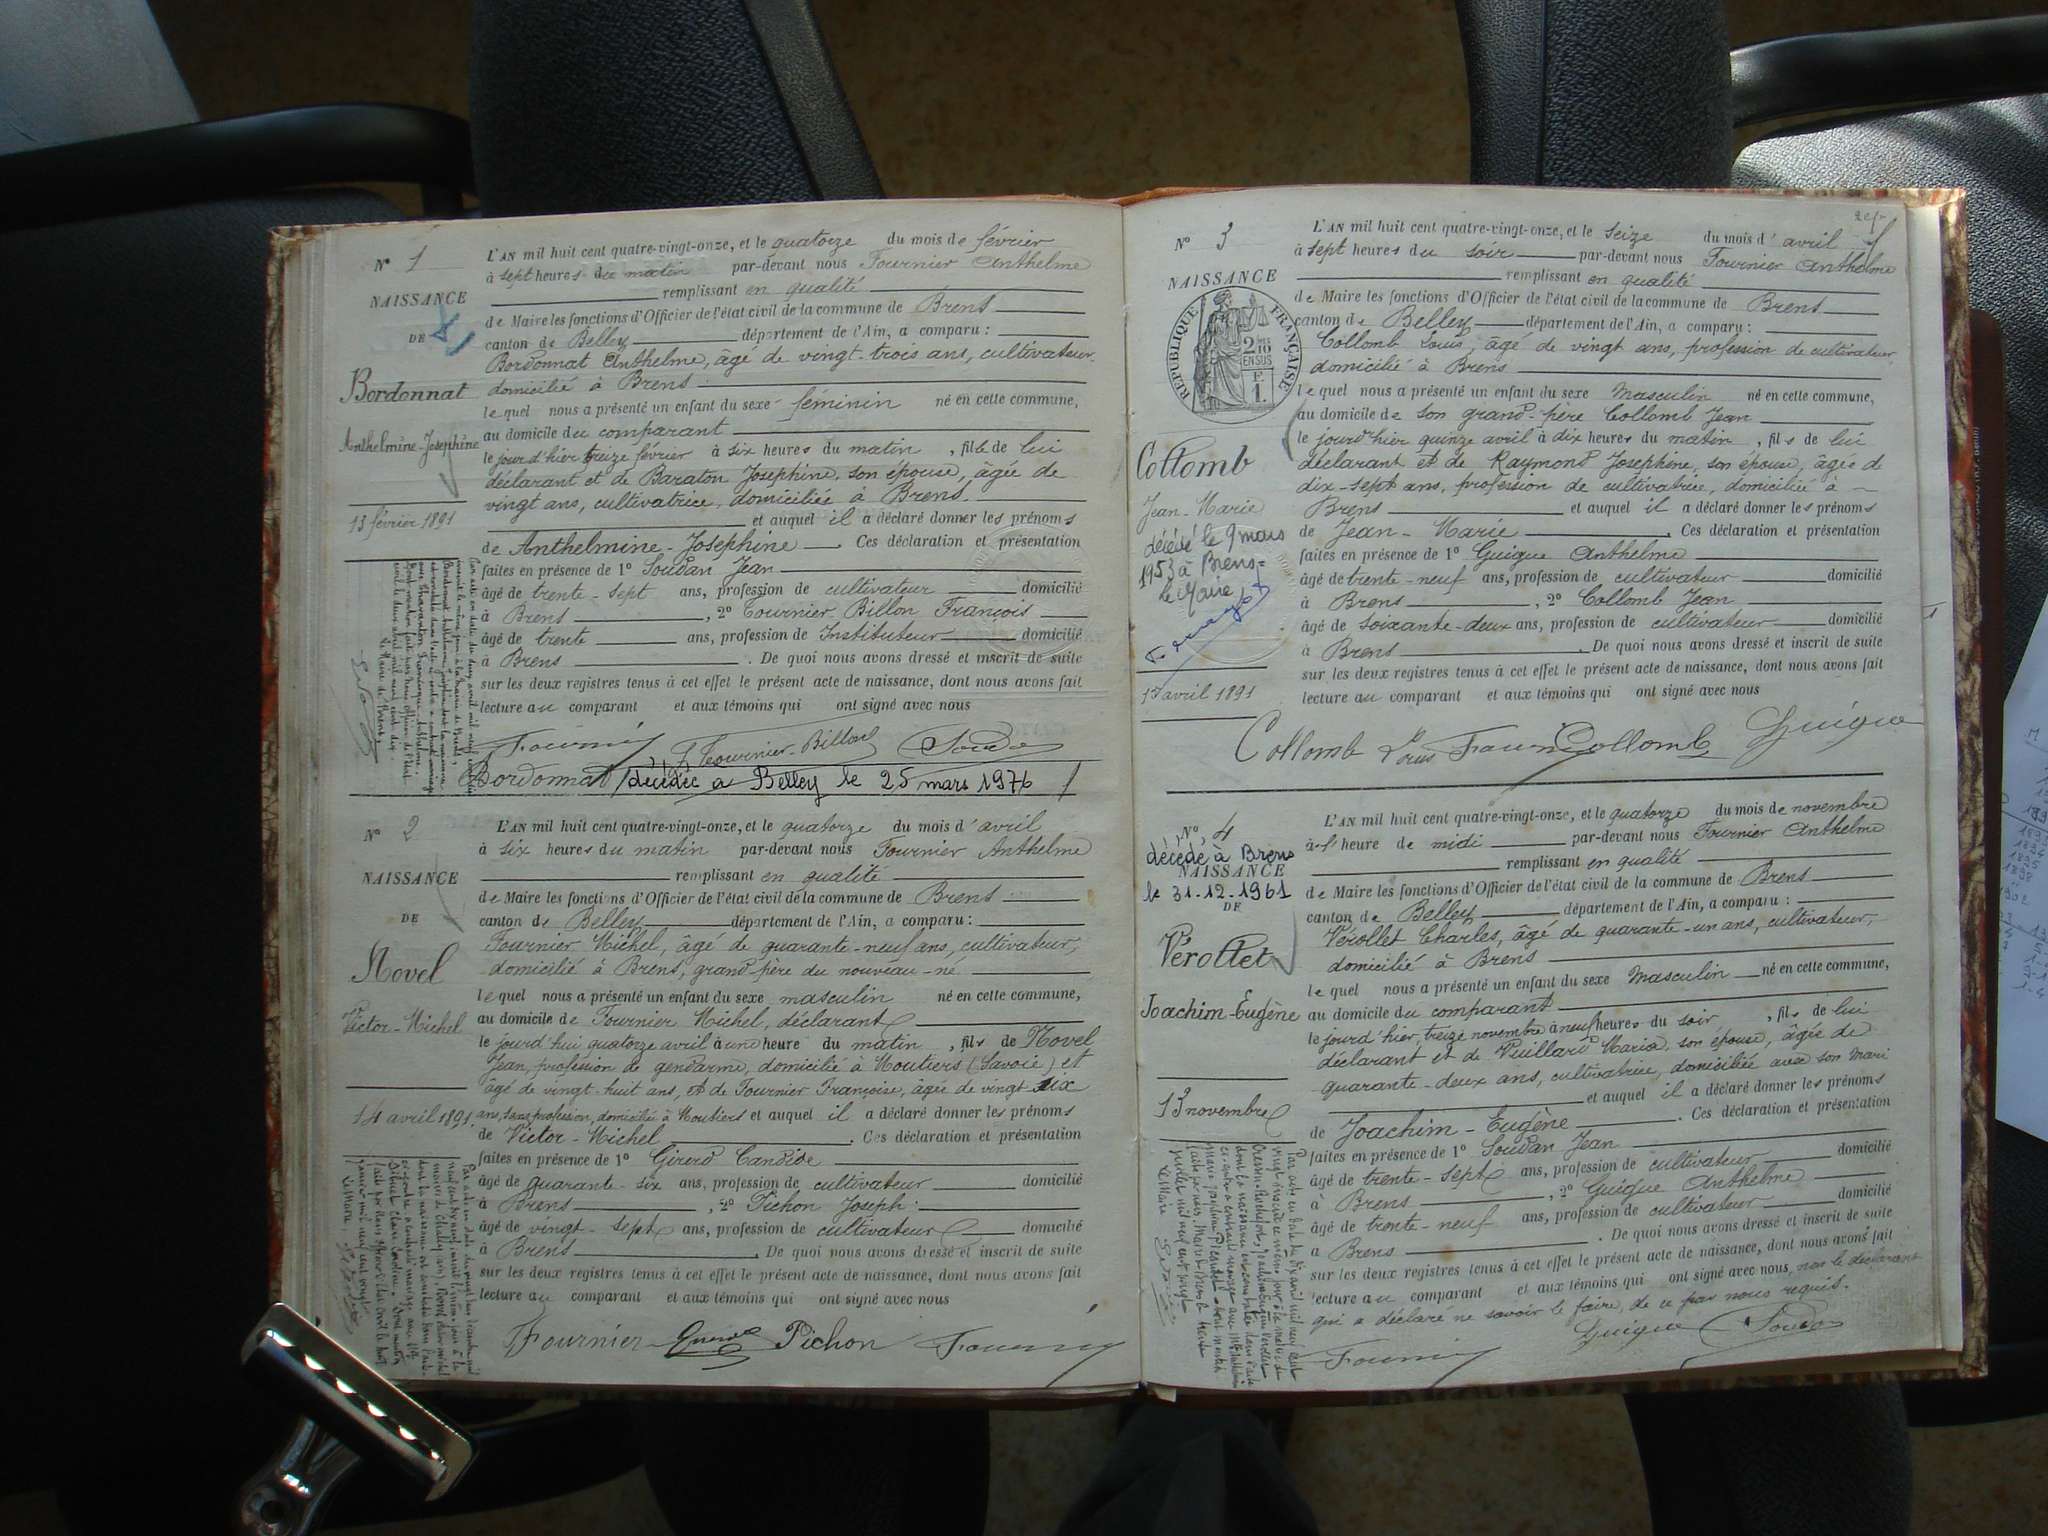 Nº 1
NAISSANCE
DE
Bordonnat
Anthelmine-Josephine
13 février 1891
L'AN mil huit cent quatre-vingt-onze, et le quatorze du mois de février
à sept heures du matin par-devant nous Fournier Anthelme
remplissant en qualité
de Maire les fonctions d'Officier de l'état civil de la commune de Brens
canton de Belley département de l'Ain, a comparu :
Bordonnat Anthelme, âgé de vingt-trois ans, cultivateur
domicilié à Brens
lequel nous a présenté un enfant du sexe féminin né en cette commune,
au domicile du comparant
le jourd'hier treize février à six heures du matin, fille de lui
déclarant et de Baraton Josephine, son épouse, âgée de
vingt ans, cultivatrice, domiciliée à Brens.
et auquel il a déclaré donner les prénoms
de Anthelmine-Josephine. Ces déclaration et présentation
faites en présence de 1º Soudan Jean
âgé de trente-sept ans, profession de cultivateur domicilié
à Brens, 2º Tournier Billon François
âgé de trente ans, profession de Instituteur domicilié
à Brens. De quoi nous avons dressé et inscrit de suite
sur les deux registres tenus à cet effet le présent acte de naissance, dont nous avons fait
lecture au comparant et aux témoins qui ont signé avec nous
Bordonnat décédée à Belley le 25 mars 1976
Nº 2
NAISSANCE
DE
Novel
Victor-Michel
14 avril 1891
L'AN mil huit cent quatre-vingt-onze, et le quatorze du mois d'avril
à six heures du matin par-devant nous Fournier Anthelme
remplissant en qualité
de Maire les fonctions d'Officier de l'état civil de la commune de Brens
canton de Belley département de l'Ain, a comparu :
Fournier Michel, âgé de quarante-neuf ans, cultivateur,
domicilié à Brens, grand-père du nouveau-né
lequel nous a présenté un enfant du sexe masculin né en cette commune,
au domicile de Fournier Michel, déclarant
le jourd'hui quatorze avril à une heure du matin, fils de Novel
Jean, profession de gendarme, domicilié à Moutiers (Savoie) et
âgé de vingt-huit ans, et de Fournier Françoise, âgée de vingt-six
ans, sans profession, domicilié à Moutiers et auquel il a déclaré donner les prénoms
de Victor-Michel. Ces déclaration et présentation
faites en présence de 1º Girerd Candide
âgé de quarante-six ans, profession de cultivateur domicilié
à Brens, 2º Pichon Joseph
âgé de vingt-sept ans, profession de cultivateur domicilié
à Brens. De quoi nous avons dressé et inscrit de suite
sur les deux registres tenus à cet effet le présent acte de naissance, dont nous avons fait
lecture au comparant et aux témoins qui ont signé avec nous
Fournier Pichon
Nº 3
NAISSANCE
RÉPUBLIQUE FRANÇAISE
Collomb
Jean-Marie
décédé le 9 mars
1953 à Brens=
le Maire
15 avril 1891
L'AN mil huit cent quatre-vingt-onze, et le seize du mois d'avril
à sept heures du soir par-devant nous Fournier Anthelme
remplissant en qualité
de Maire les fonctions d'Officier de l'état civil de la commune de Brens
canton de Belley département de l'Ain, a comparu :
Collomb Louis, âgé de vingt ans, profession de cultivateur,
domicilié à Brens
lequel nous a présenté un enfant du sexe masculin né en cette commune,
au domicile de son grand-père Collomb Jean
le jourd'hier quinze avril à dix heures du matin, fils de lui
déclarant et de Raymond Josephine, son épouse, âgée de
dix-sept ans, profession de cultivatrice, domicilié à
Brens et auquel il a déclaré donner les prénoms
de Jean-Marie. Ces déclaration et présentation
faites en présence de 1º Guigue Anthelme
âgé de trente-neuf ans, profession de cultivateur domicilié
à Brens, 2º Collomb Jean
âgé de soixante-deux ans, profession de cultivateur domicilié
à Brens. De quoi nous avons dressé et inscrit de suite
sur les deux registres tenus à cet effet le présent acte de naissance, dont nous avons fait
lecture au comparant et aux témoins qui ont signé avec nous
Collomb Louis Collomb Guigue
Nº 4
décédé à Brens
NAISSANCE
le 31-12-1961
DE
Vérollet
Joachim-Eugène
13 novembre
L'AN mil huit cent quatre-vingt-onze, et le quatorze du mois de novembre
à l'heure de midi par-devant nous Fournier Anthelme
remplissant en qualité
de Maire les fonctions d'Officier de l'état civil de la commune de Brens
canton de Belley département de l'Ain, a comparu :
Vérollet Charles, âgé de quarante-un ans, cultivateur,
domicilié à Brens
lequel nous a présenté un enfant du sexe masculin né en cette commune,
au domicile du comparant
le jourd'hier treize novembre à neuf heures du soir, fils de lui
déclarant et de Vuillard Maria, son épouse, âgée de
quarante-deux ans, cultivatrice, domiciliée avec son mari
et auquel il a déclaré donner les prénoms
de Joachim-Eugène. Ces déclaration et présentation
faites en présence de 1º Soudan Jean
âgé de trente-sept ans, profession de cultivateur domicilié
à Brens, 2º Guigue Anthelme
âgé de trente-neuf ans, profession de cultivateur domicilié
à Brens. De quoi nous avons dressé et inscrit de suite
sur les deux registres tenus à cet effet le présent acte de naissance, dont nous avons fait
lecture au comparant et aux témoins qui ont signé avec nous, non le déclarant
qui a déclaré ne savoir le faire, de ce par nous requis.
Guigue